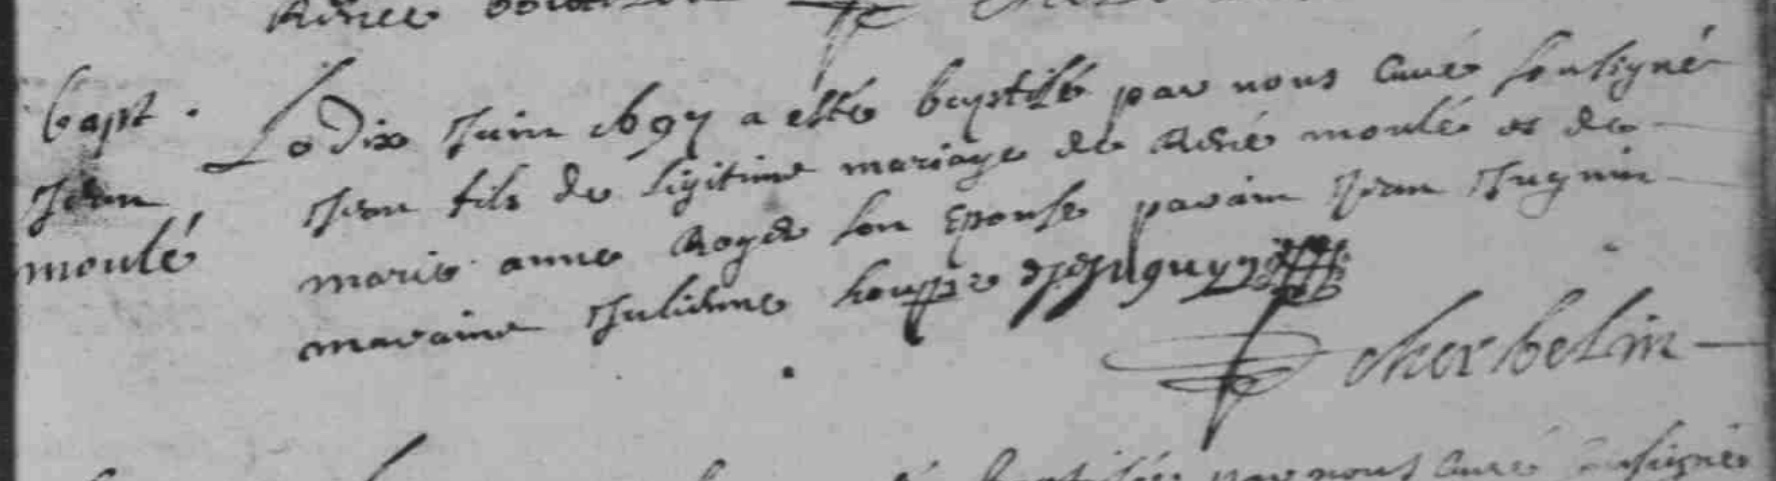 René
bapt.
Jean
moulé
Le Dix Juin 1697 a esté baptisé par nous Curé soussigné
Jean fils de legitime mariage de René moulé et de
marie anne Royer son Epouse parain Jean Juguin
maraine Julienne houssie J Juguyn
cherbelin
par nous Curé soussigné